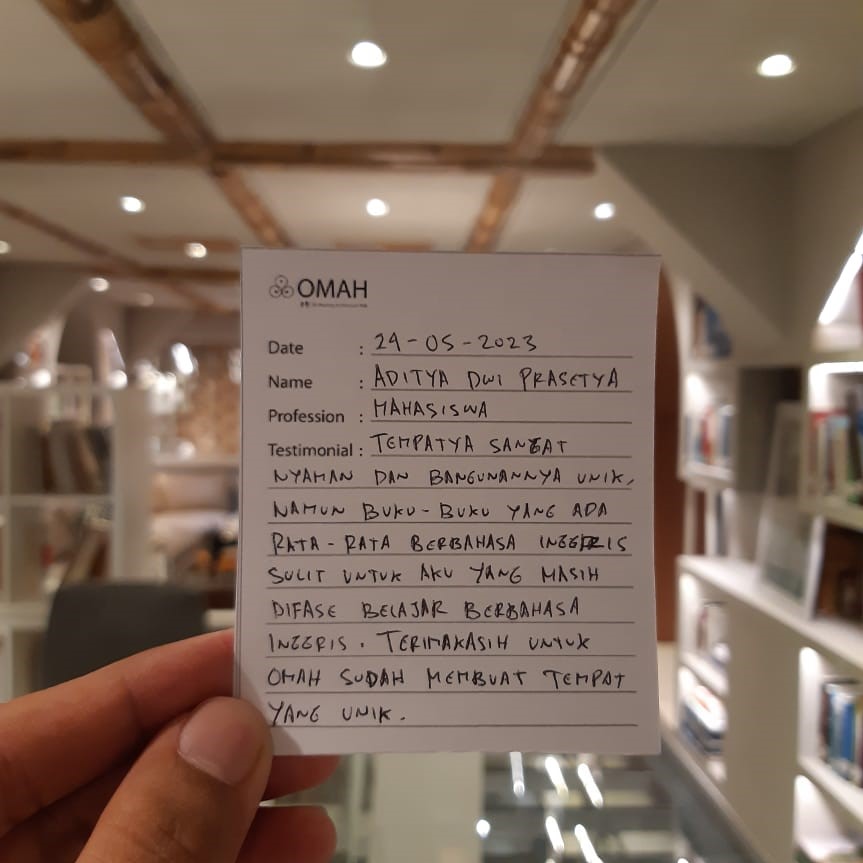 OMAH
Date : 29-05-2023
Name : ADITYA DWI PRASETYA
Profession : MAHASISWA
Testimonial : TEMPATYA SANGAT
NYAMAN DAN BANGUNANNYA UNIK,
NAMUN BUKU-BUKU YANG ADA
RATA-RATA BERBAHASA INGGRIS
SULIT UNTUK AKU YANG MASIH
DIFASE BELAJAR BERBAHASA
INGGRIS. TERIMAKASIH UNTUK
OMAH SUDAH MEMBUAT TEMPAT
YANG UNIK.